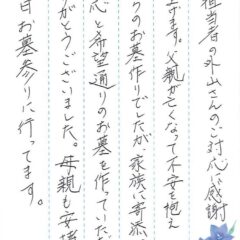 担当者の外山さんのご対応に感謝
上げます。父親が亡くなって不安を抱え
らのお墓作りでしたが、家族に寄添
心と希望通りのお墓を作っていただ
がとうございました。母親も安堵
日お墓参りに行ってます。